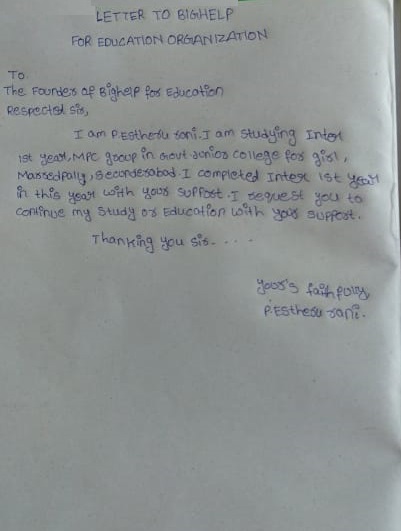 LETTER TO BIGHELP
FOR EDUCATION ORGANIZATION
To
The Founder of Bighelp for Education
Respected Sir,
I am P.Estheru rani. I am studying Inter
1st year, MPC group in Govt Junior College for girl,
Marredpally, Secunderabad. I completed Inter 1st year
in this year with your support. I request you to
continue my study or Education with your support.
Thanking you sir. . . .
your's faithfully,
P.Estheru rani.